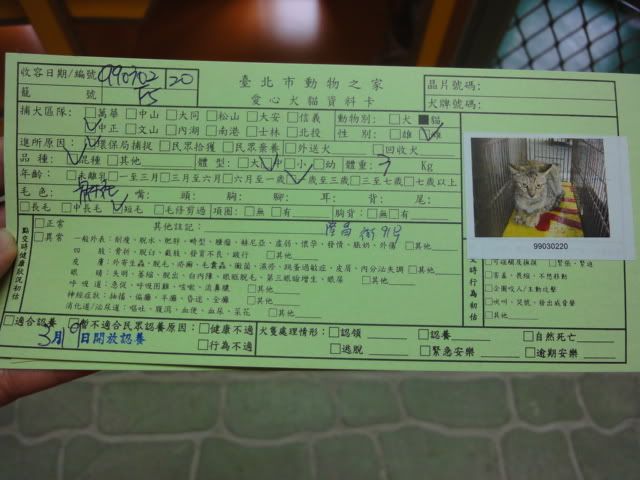 臺北市動物之家
愛心犬貓資料卡
收容日期/編號 990302 20
籠 號 F5
晶片號碼:
犬牌號碼:
捕犬區隊: □萬華 □中山 □大同 □松山 □大安 □信義
☑中正 □文山 □內湖 □南港 □士林 □北投
動物別: □犬 ■貓
性 別: □雄 ☑雌
進所原因: ☑環保局捕捉 □民眾拾獲 □民眾棄養 □外送犬 □回收犬
品 種: ☑混種 □其他 體 型: □大 ☑中 □小 □幼 體重: 3 Kg
年齡: □未離乳 □一至三月 □三月至六月 □六月至一歲 ☑一歲至三歲 □三至七歲 □七歲以上
毛色: 麻花 嘴: 頭: 胸: 腳: 耳: 背: 尾:
□長毛 □中長毛 ☑短毛 □毛修剪過 項圈: □無 □有 胸背: □無 □有
點交時健康狀況初估
□正常 其他註記: 街91号
□異常 一般外表: 削瘦、脫水、肥胖、畸型、腫瘤、赫尼亞、虛弱、懷孕、發情、脹奶、外傷 □其他
四 肢: 骨折、脫臼、截肢、發育不良、跛行 □其他
皮 膚: 外寄生蟲、脫毛、疥癬、毛囊蟲、黴菌、濕疹、跳蚤過敏症、皮膚、內分泌失調 □其他
眼 睛: 失明、萎縮、脫出、白內障、眼瞼脫毛、第三眼瞼增生、眼屎 □其他
呼 吸 道: 急促、呼吸困難、咳嗽、流鼻膿 □其他
神經症狀: 抽搐、偏癱、半癱、昏迷、全癱 □其他
消化道/泌尿道: 嘔吐、腹瀉、血便、血尿、菜花 □其他
99030220
交時行為初估
□可碰觸及撫摸 □緊張、緊迫
□害羞、畏縮、不想移動
□企圖咬人/主動攻擊
□吠叫、哭號、發出威脅聲
□其他
□適合認養 ☑暫不適合民眾認養原因: □健康不適
□行為不適
3月10日開放認養
犬隻處理情形: □認領 □認養 □自然死亡
□逃脫 □緊急安樂 □逾期安樂